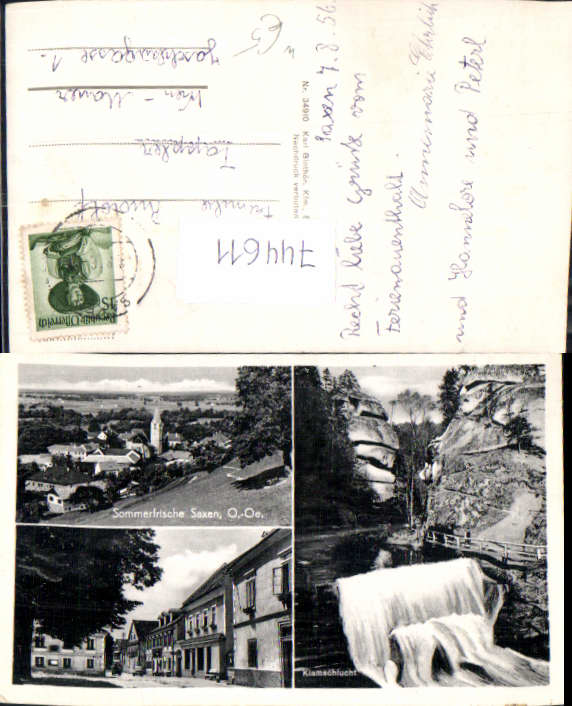 Saxen 7.8.56.
Recht liebe Grüße vom
Ferienaufenthalt.
Annemarie Ehrlich
und Hannelore und Peterl
Familie
Rudolf
Tappler
Wien - Mauer
1.
Nr. 34910 Karl
Nachdruck verboten
744611
Republik Österreich
Sommerfrische Saxen, O.-Oe.
Klamschlucht